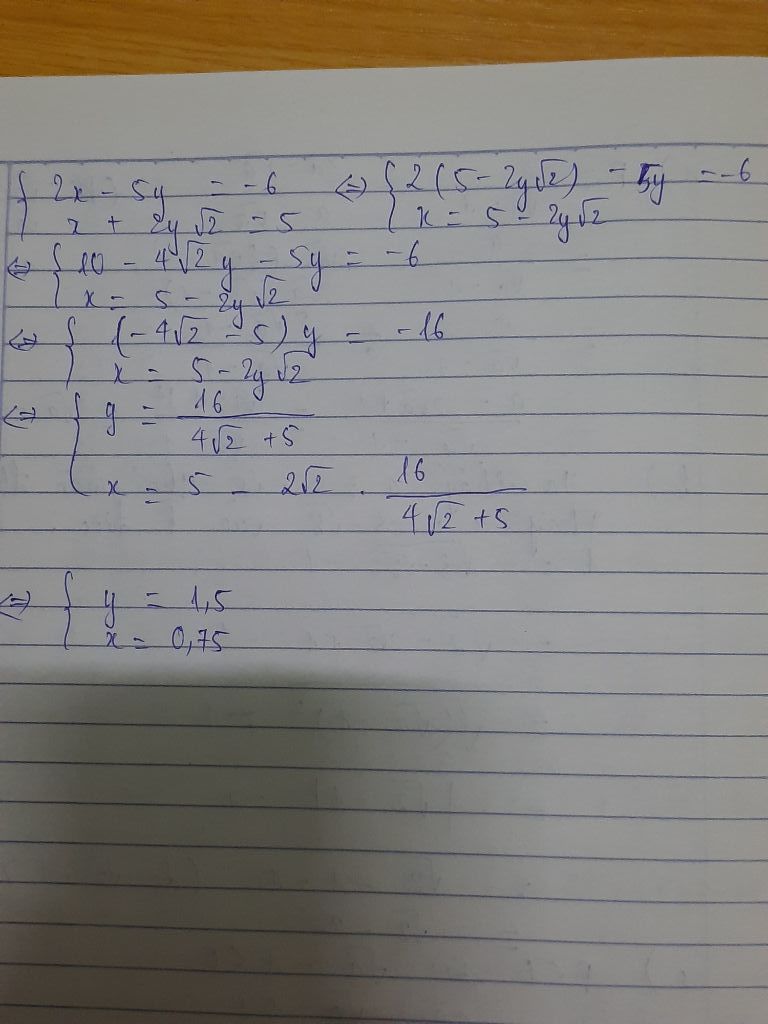 { 2x - 5y = -6 ⇔ { 2(5 - 2y√2) - 5y = -6
x + 2y√2 = 5 x = 5 - 2y√2
⇔ { 10 - 4√2y - 5y = -6
x = 5 - 2y√2
⇔ { (-4√2 - 5)y = -16
x = 5 - 2y√2
⇔ { y = 16/(4√2 + 5)
x = 5 - 2√2 . 16/(4√2 + 5)
⇔ { y = 1,5
x = 0,75